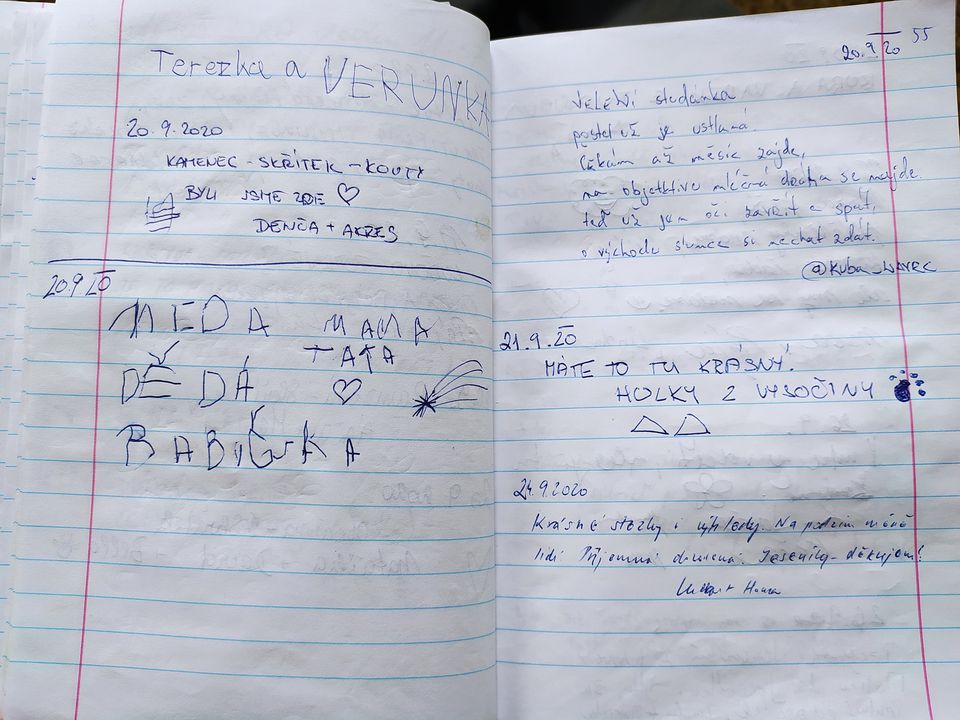 Terezka a VERUNKA
20.9.2020
KAMENEC - SKŘÍTEK - KOUTY
BYLI JSME ZDE
DENČA + AKRES
20.9 20
MEDA MAMA
TATA
DĚDA
BABIČKA
55
20.9 20
studánka
postel už je ustlaná.
čekám až měsíc zajde,
na objektivu mléčná dráha se najde.
teď už jen oči zavřít a spát,
o východu slunce si nechat zdát.
@Kuba_
21.9.20
MÁTE TO TU KRÁSNÝ!
HOLKY Z VYSOČINY
24.9.2020
Krásné stezky i výhledy. Na podzim méně
lidí. Příjemná dovolená. Jeseníky - děkujem!